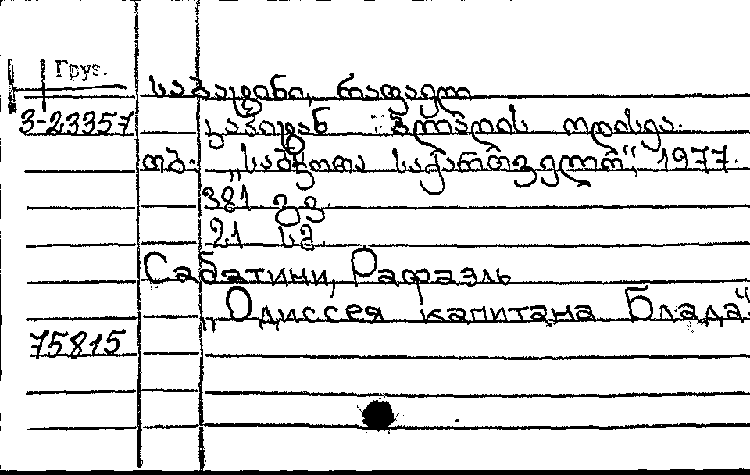 Груз.
საბატინი, რაფაელ
3-23357 კაპიტან ბლადის ოდისეა.
თბ. „საბჭოთა საქართველო“, 1977.
381 გვ.
21 სმ.
Сабатини, Рафаэль
„Одиссея капитана Блада“
75815